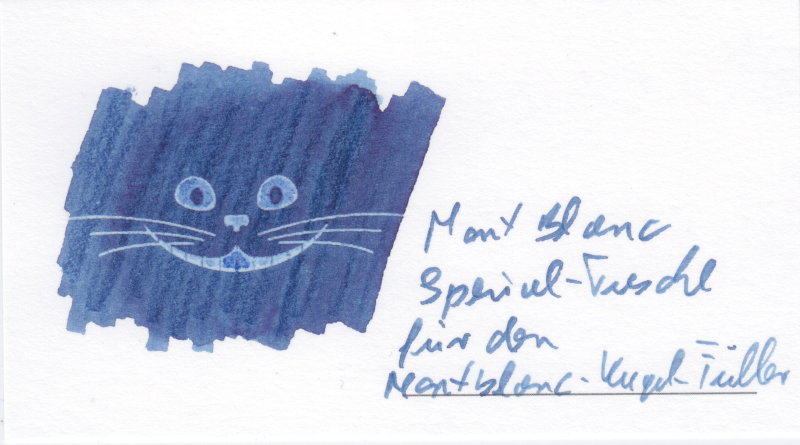 Mont Blanc
Spezial-Tusche
für den
Montblanc-Kugel-Füller